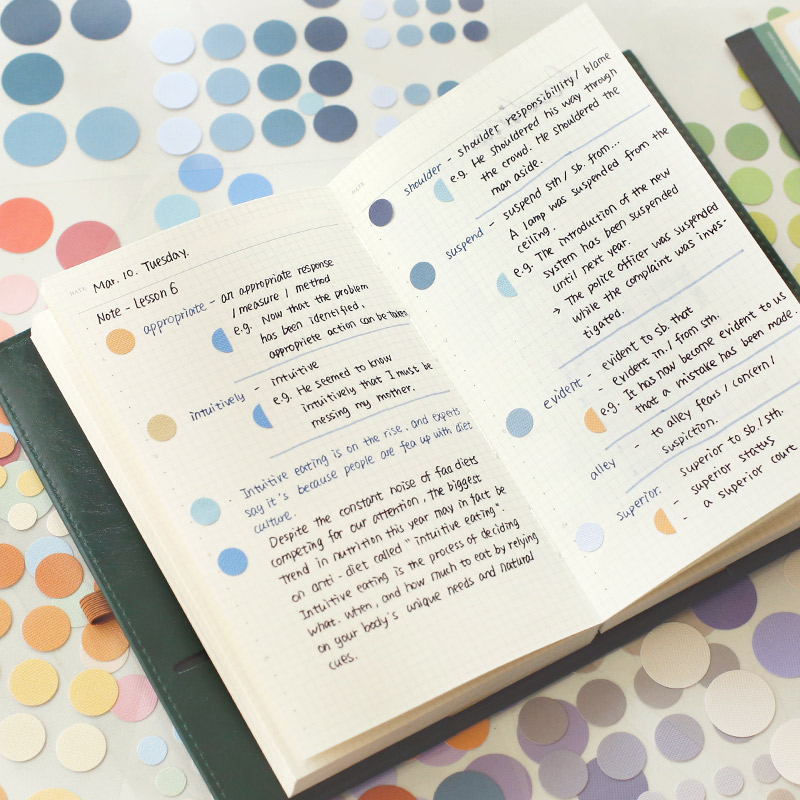 DATE
Mar. 10. Tuesday.
Note - Lesson 6
appropriate - an appropriate response
/ measure / method
e.g. Now that the problem
has been identified,
appropriete action can be taken
intuitively - intuitive
e.g. He seemed to know
intuitively that I must be
messing my mother.
· Intuitive eating is on the rise, and experts
say it's because people are fea up with diet
culture.
Despite the constant noise of fad diets
competing for our attention, the biggest
trend in nutrition this year may in fact be
on anti-diet called "intuitive eating".
Intuitive eating is the process of deciding
what. when, and how much to eat by relying
on your body's unique needs and natural
cues.
DATE
shoulder - shoulder responsibility / blame
e.g. He shouldered his way through
the crowd. He shouldered the
man aside.
suspend - suspend sth / sb. from...
A lamp was suspended from the
ceiling.
e.g. The introduction of the new
system has been suspended
until next year.
→ The police officer was suspended
while the complaint was inves-
tigated.
evident - evident to sb. that
- evident in / from sth.
e.g. It has now become evident to us
that a mistake has been made.
alley - to alley fears / concern /
suspiction.
superior: superior to sb. / sth.
- superior status
- a superior court